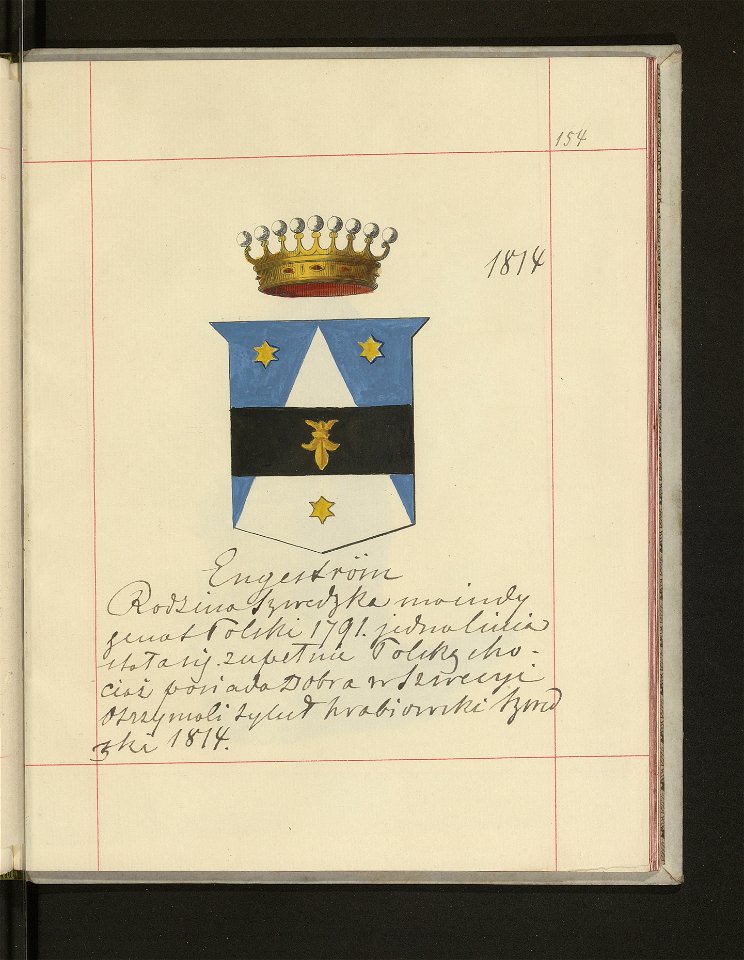 154
1814
Engeström
Rodzina Szwedzka ma indy
genat Polski 1791. jedna linia
stała się zupełnie Polską cho-
ciaż posiada Dobra w Szwecyi
otrzymali tytuł hrabiowski Szwed
zki 1814.